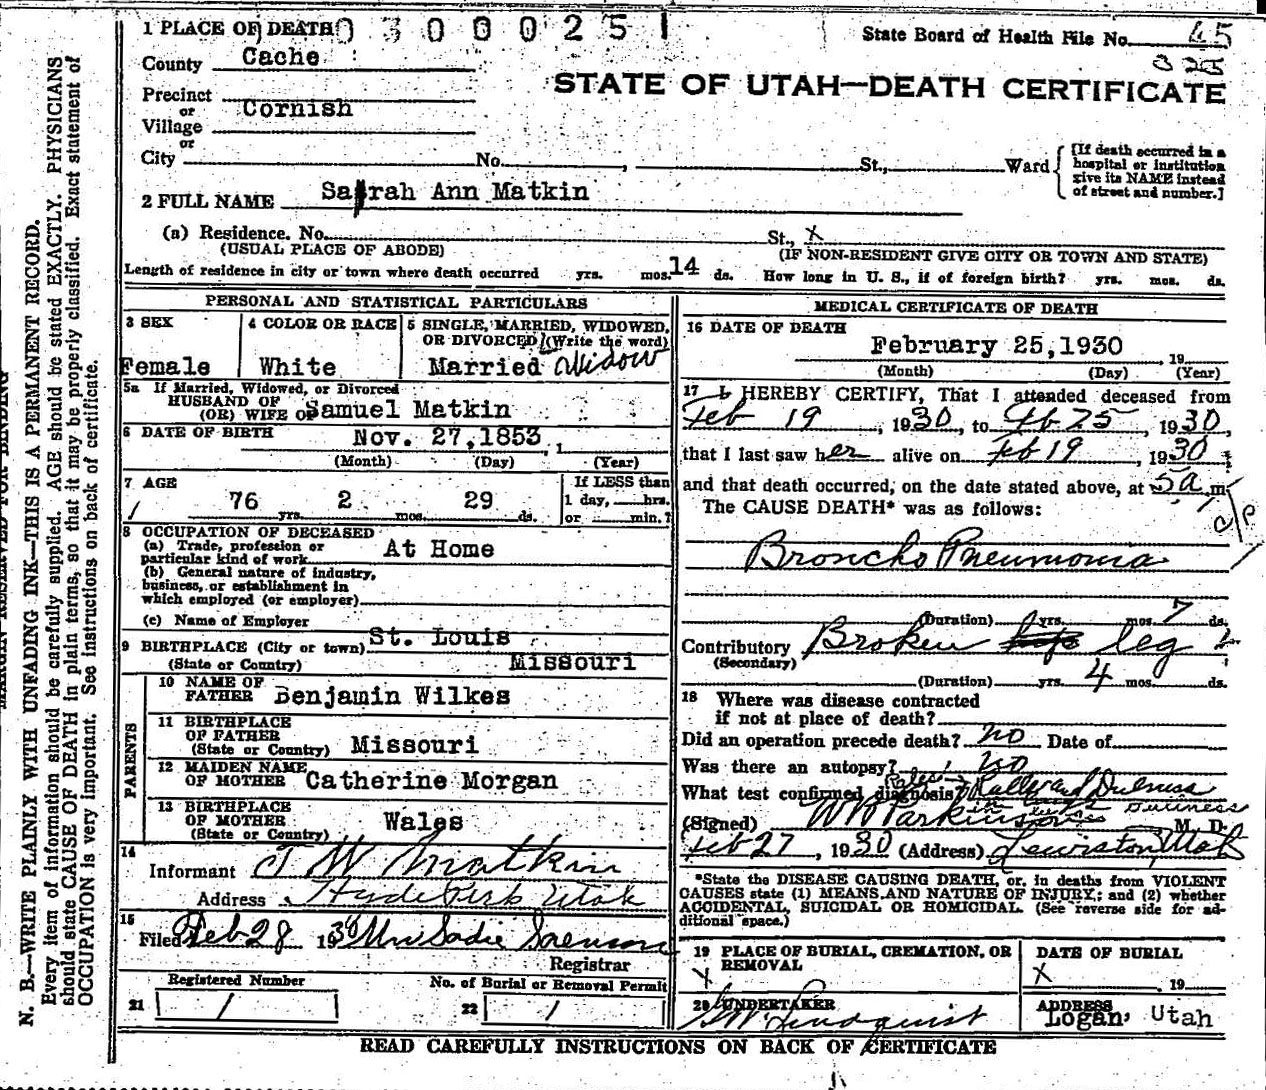 1 PLACE OF DEATH 0300025 1
State Board of Health File No. 45
325
County Cache
STATE OF UTAH—DEATH CERTIFICATE
Precinct
or
Village Cornish
or
City No. , St., Ward
[If death occurred in a hospital or institution give its NAME instead of street and number.]
2 FULL NAME Sarah Ann Matkin
(a) Residence. No. St., X
(USUAL PLACE OF ABODE) (IF NON-RESIDENT GIVE CITY OR TOWN AND STATE)
Length of residence in city or town where death occurred yrs. mos. 14 ds. How long in U. S., if of foreign birth? yrs. mos. ds.
PERSONAL AND STATISTICAL PARTICULARS
3 SEX 4 COLOR OR RACE 5 SINGLE, MARRIED, WIDOWED,
OR DIVORCED (Write the word)
Female White Married Widow
5a If Married, Widowed, or Divorced
HUSBAND OF
(OR) WIFE OF Samuel Matkin
6 DATE OF BIRTH Nov. 27,1853 , 1
(Month) (Day) (Year)
7 AGE If LESS than
76 yrs. 2 mos. 29 ds. 1 day, hrs.
or min.?
8 OCCUPATION OF DECEASED
(a) Trade, profession or
particular kind of work At Home
(b) General nature of industry,
business, or establishment in
which employed (or employer)
(c) Name of Employer
9 BIRTHPLACE (City or town) St. Louis
(State or Country) Missouri
PARENTS
10 NAME OF
FATHER Benjamin Wilkes
11 BIRTHPLACE
OF FATHER
(State or Country) Missouri
12 MAIDEN NAME
OF MOTHER Catherine Morgan
13 BIRTHPLACE
OF MOTHER
(State or Country) Wales
14
Informant T W Matkin
Address Hyde Park Utah
15
Filed Feb 28 1930 Mrs Sadie Sorenson
Registrar
Registered Number No. of Burial or Removal Permit
21 / 22 /
MEDICAL CERTIFICATE OF DEATH
16 DATE OF DEATH
February 25,1930 , 19
(Month) (Day) (Year)
17 I HEREBY CERTIFY, That I attended deceased from
Feb 19 , 1930, to Feb 25 , 1930,
that I last saw her alive on Feb 19 , 1930,
and that death occurred, on the date stated above, at 5a m.
The CAUSE DEATH* was as follows:
Broncho Pneumonia
(Duration) yrs. mos. 7 ds.
Contributory Broken leg
(Secondary)
(Duration) yrs. 4 mos. ds.
18 Where was disease contracted
if not at place of death?
Did an operation precede death? no Date of
Was there an autopsy? no
What test confirmed diagnosis? Rales and Dulness
(Signed) W B Parkinson M. D.
Feb 27 , 1930 (Address) Lewiston, Utah
*State the DISEASE CAUSING DEATH, or, in deaths from VIOLENT
CAUSES state (1) MEANS AND NATURE OF INJURY; and (2) whether
ACCIDENTAL, SUICIDAL OR HOMICIDAL. (See reverse side for ad-
ditional space.)
19 PLACE OF BURIAL, CREMATION, OR
REMOVAL
X
DATE OF BURIAL
X , 19
20 UNDERTAKER
Lindquist
ADDRESS
Logan, Utah
READ CAREFULLY INSTRUCTIONS ON BACK OF CERTIFICATE
MARGIN RESERVED FOR BINDING
N. B.—WRITE PLAINLY WITH UNFADING INK—THIS IS A PERMANENT RECORD.
Every item of information should be carefully supplied. AGE should be stated EXACTLY. PHYSICIANS
should state CAUSE OF DEATH in plain terms, so that it may be properly classified. Exact statement of
OCCUPATION is very important. See instructions on back of certificate.